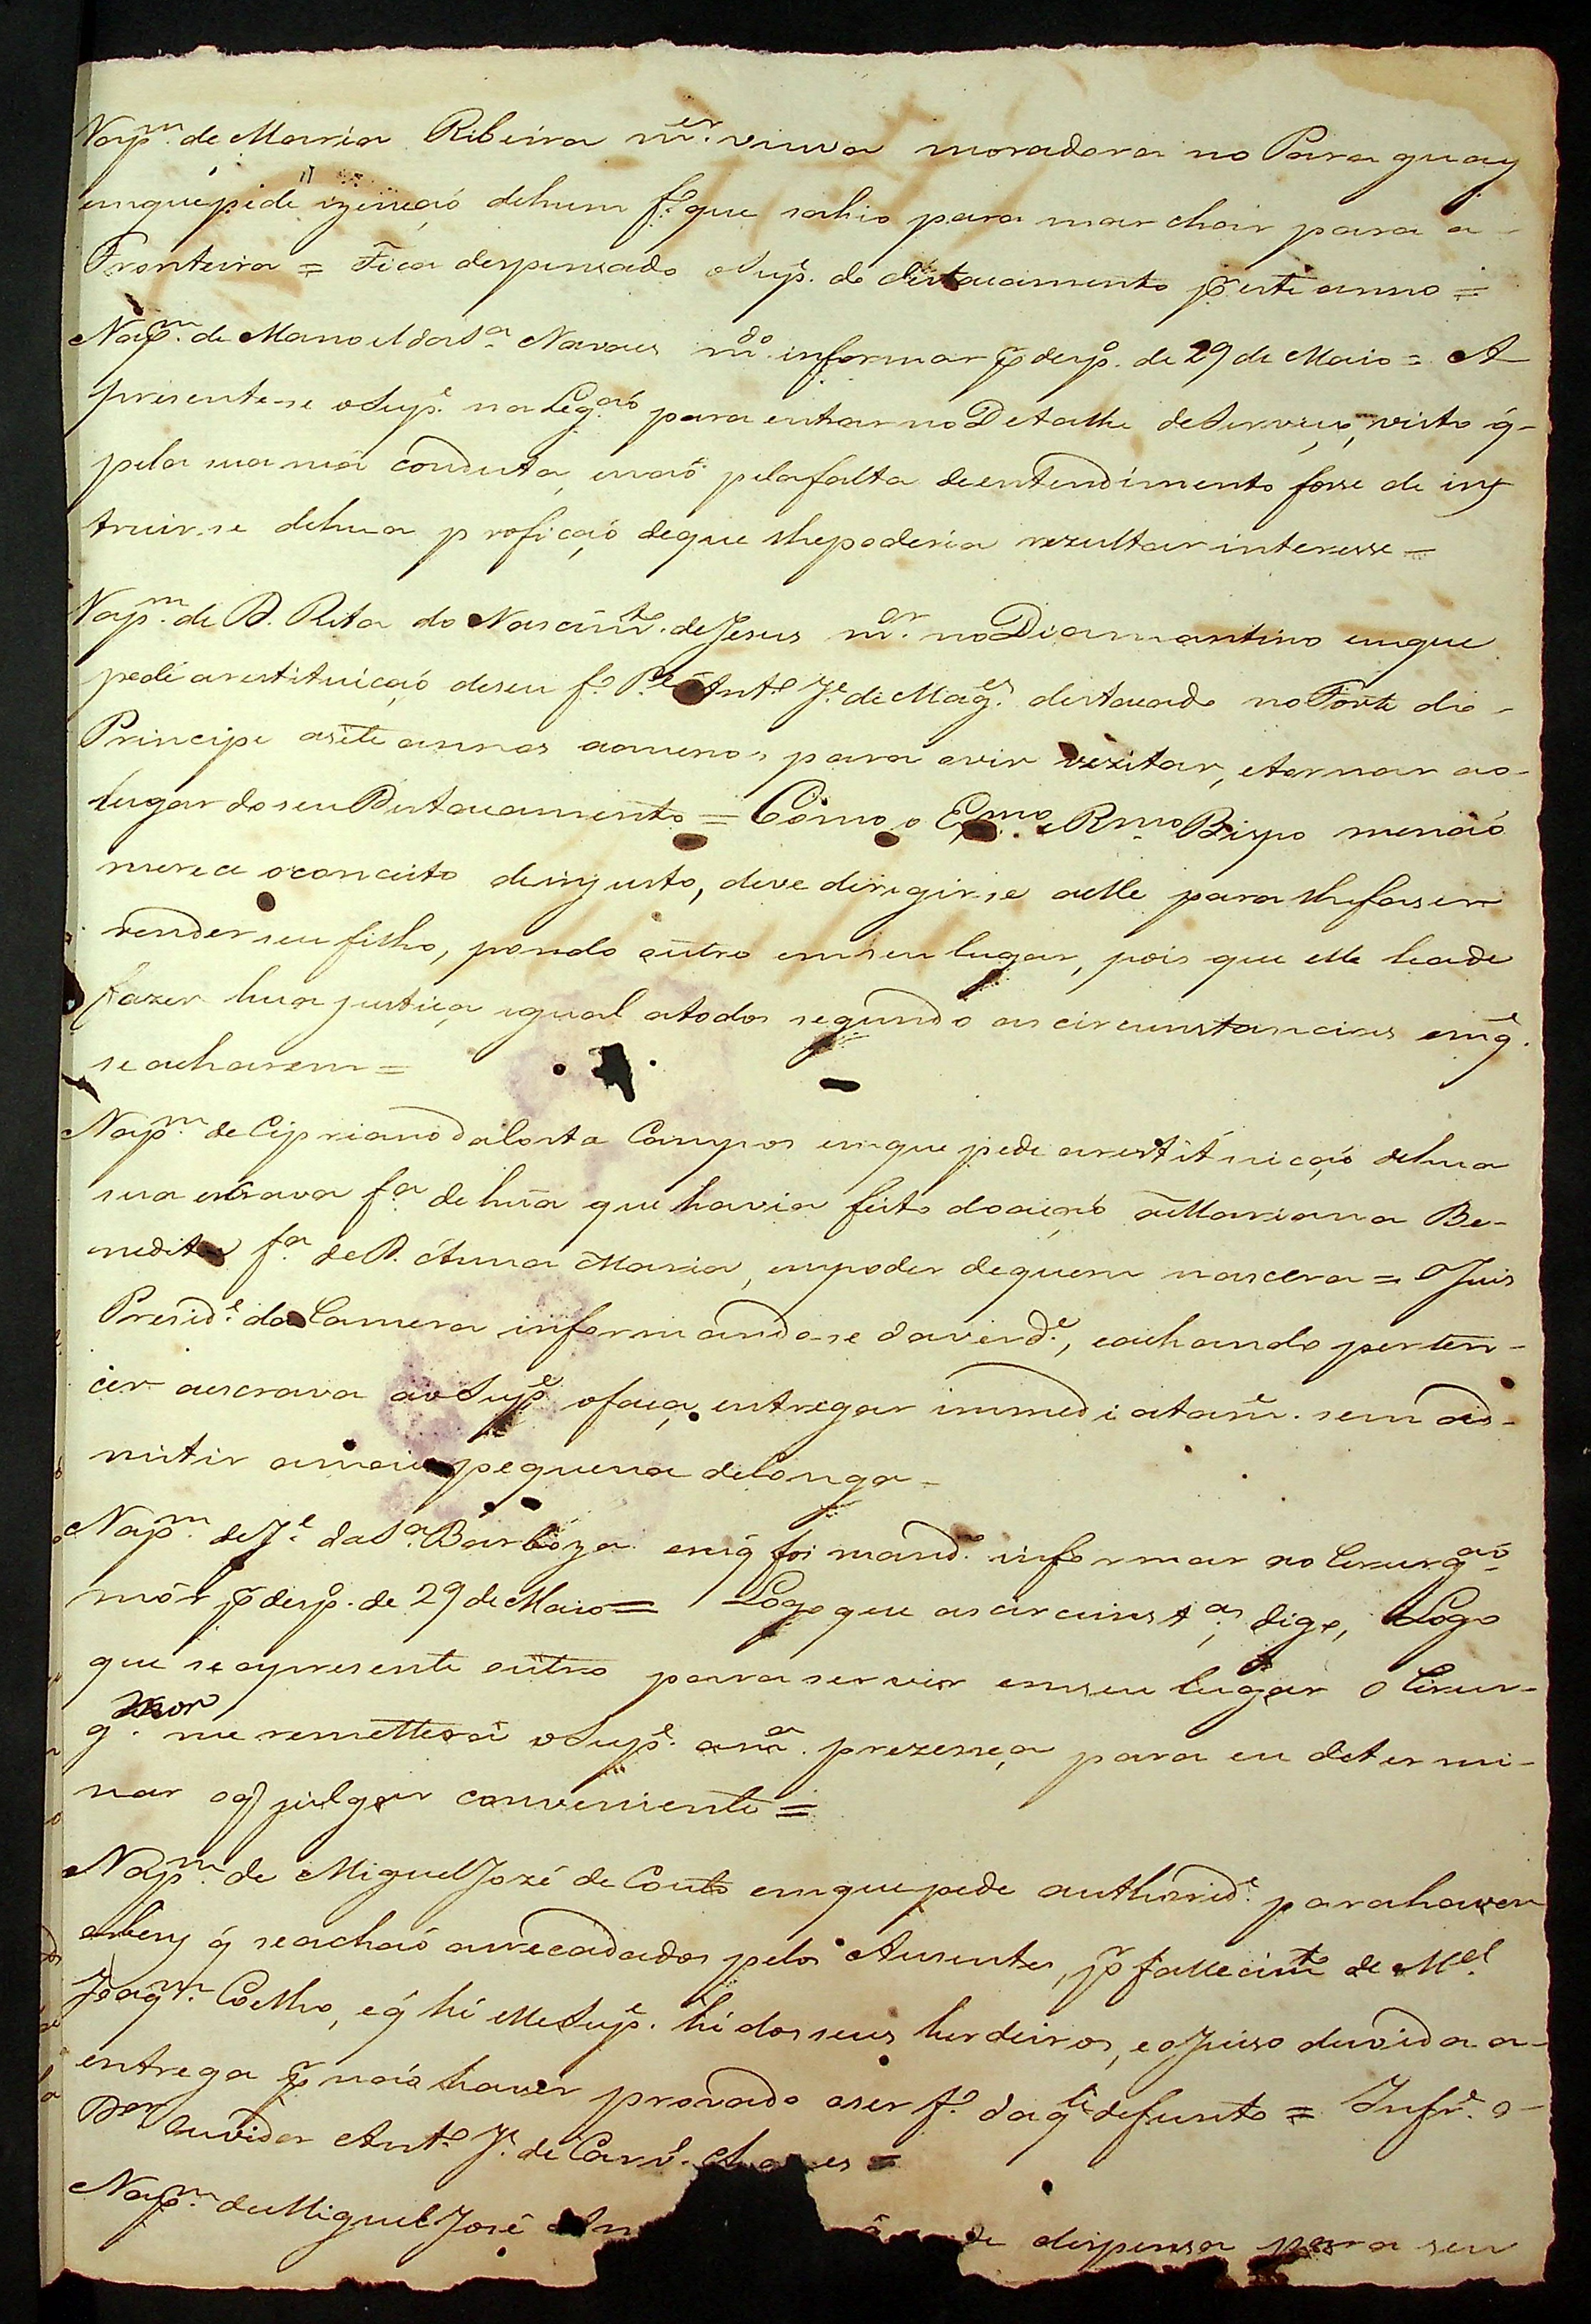 Nap.m de Maria Ribeira m.er viuva moradora no Paraguay
emque pede izençaõ dehum f.o que sahio para marchar para a
Fronteira = Fica despensado o Sup.e do destacamento p.r este anno =
Nap.m de Manoel da S.a Navaes m.do informar p.r desp.o de 29 de Maio = A
presente-se o Sup.e na Leg.aõ para entrar no Detalhe de Serviço, visto q
pela sua má conduta, enaõ pela falta de entendimento foxe de ins
truir-se dehua proficaõ deque lhe poderia rezultar interesse =
Nap.m de D. Rita do Nascim.to de Jesus m.er no Diamantino emque
pede arestituicaõ deseu f.o P.e Ant.o J.e de Mag.es destacado no Forte do
Principe asete annos aomenos para avir vezitar, etornar ao
lugar do seu Destacamento = Como o Ex.mo e R.mo Bispo menaõ
merece oconceito deinjusto, deve deregir-se aelle para lhe faser
render seu filho, pondo outro emseu lugar, pois que elle hade
fazer hua justiça igual atodos segundo as circunstancias emq.e
se acharem =
Nap.m de Cipriano da Costa Campos emque pede arestituicaõ dehua
sua escrava f.a de hũa que havia feito doacaõ a Mariana Be-
nedita f.a de D. Anna Maria, empoder dequem nascera = O Juis
Presid.e da Camera informando-se da verd.e, eachando perten-
cer aescrava ao Sup.e ofaça entregar immediatam.e sem ad-
mitir amais pequena delonga =
Nap.m de J.e da S.a Barboza emq foi mand.o informar ao Cirurg.aõ
mór p.r desp.o de 29 de Maio = Logo que as circunst.as, digo, Logo
que se apresente outro para servir emseu lugar o Cirur-
g. mor me remetterá o Sup.e am.a prezença para eu determi-
nar oq julgar conveniente =
Nap.m de Miguel José de Couto emque pede authorid.e para haver
osbens q seachaõ arrecadados pelos Ausentes, p.r fallecim.to de M.el
Joaq.m Coelho, eq hé elle Sup.e hé dos seus herdeiros, eo Juiso duvida a
entrega p.r naõ haver provado aser f.o daq.le defunto = Infr.e o
D.or Ouvidor Ant.o J.e de Carv.o Chaves =
Nap.m de Miguel José An de dispensa para seu